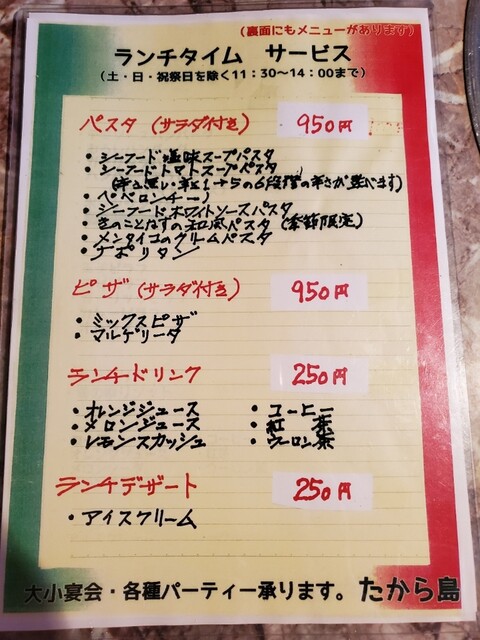 (裏面にもメニューがあります)
ランチタイム サービス
(土・日・祝祭日を除く11:30~14:00まで)
パスタ (サラダ付き) 950円
・シーフード塩味スープパスタ
・シーフードトマトスープパスタ
(辛さ無い・辛さ1→5の6段階の辛さが選べます)
・ペペロンチーノ
・シーフードホワイトソースパスタ
・きのことなすの和風パスタ (季節限定)
・メンタイコのクリームパスタ
・ナポリタン
ピザ (サラダ付き) 950円
・ミックスピザ
・マルゲリータ
ランチドリンク 250円
・オレンジジュース ・コーヒー
・メロンジュース ・紅 茶
・レモンスカッシュ ・ウーロン茶
ランチデザート 250円
・アイスクリーム
大小宴会・各種パーティー承ります。たから島